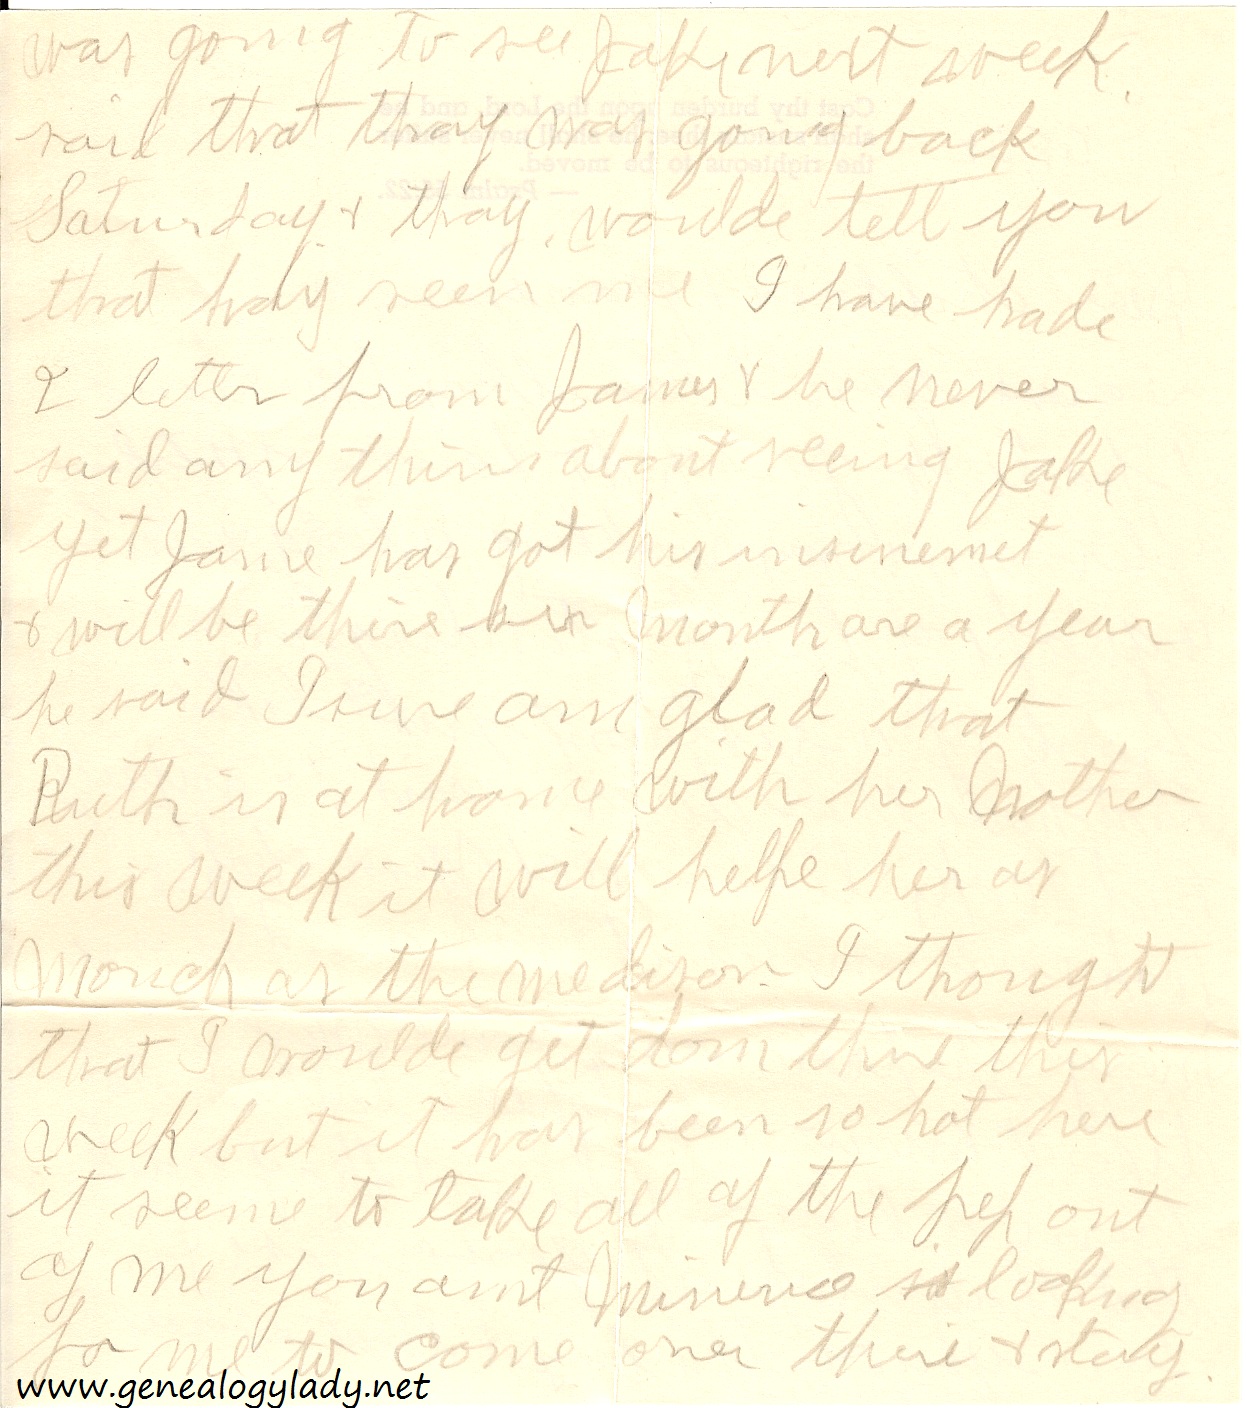 was going to see Jake next week.
said that thay was going back
Saturday & thay woulde tell you
that hay seen me I have hade
2 letter from James & he never
said any thins about seeing Jake
yet Jame has got his
& will be thire six Month are a year
he said I sure am glad that
Ruth is at home with her Mother
this week it will helpe her as
Mouch as the medison. I thought
that I woulde get dom thire this
week but it has been so hot here
it seeme to take all of the pep out
of me you aint Minerva is looking
for me to come over thire & stay.
Cast thy burden upon the Lord, and he
shall sustain thee: he shall never suffer
the righteous to be moved.
— Psalm 55:22.
www.genealogylady.net